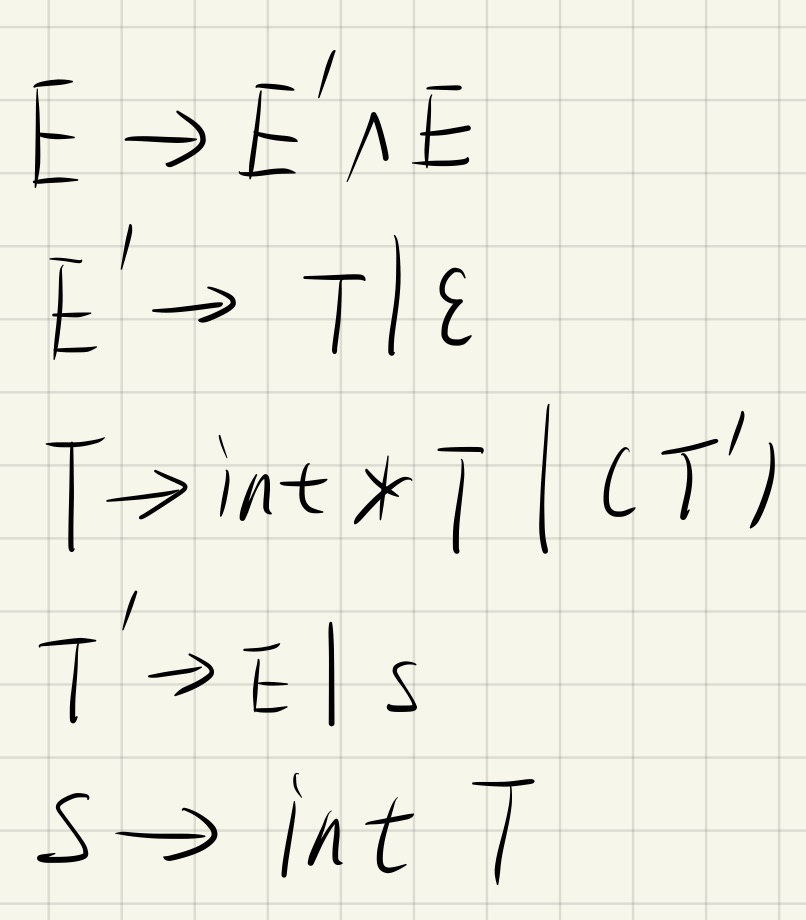 E → E' ∧ E
E' → T | ε
T → int * T | (T')
T' → E | S
S → int T